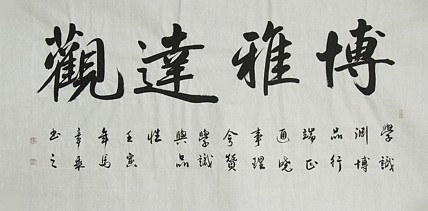 博雅達觀
學識
渊博
品行
端正
通曉
事理
贊
學識
與品
性
壬寅
年馬
書之